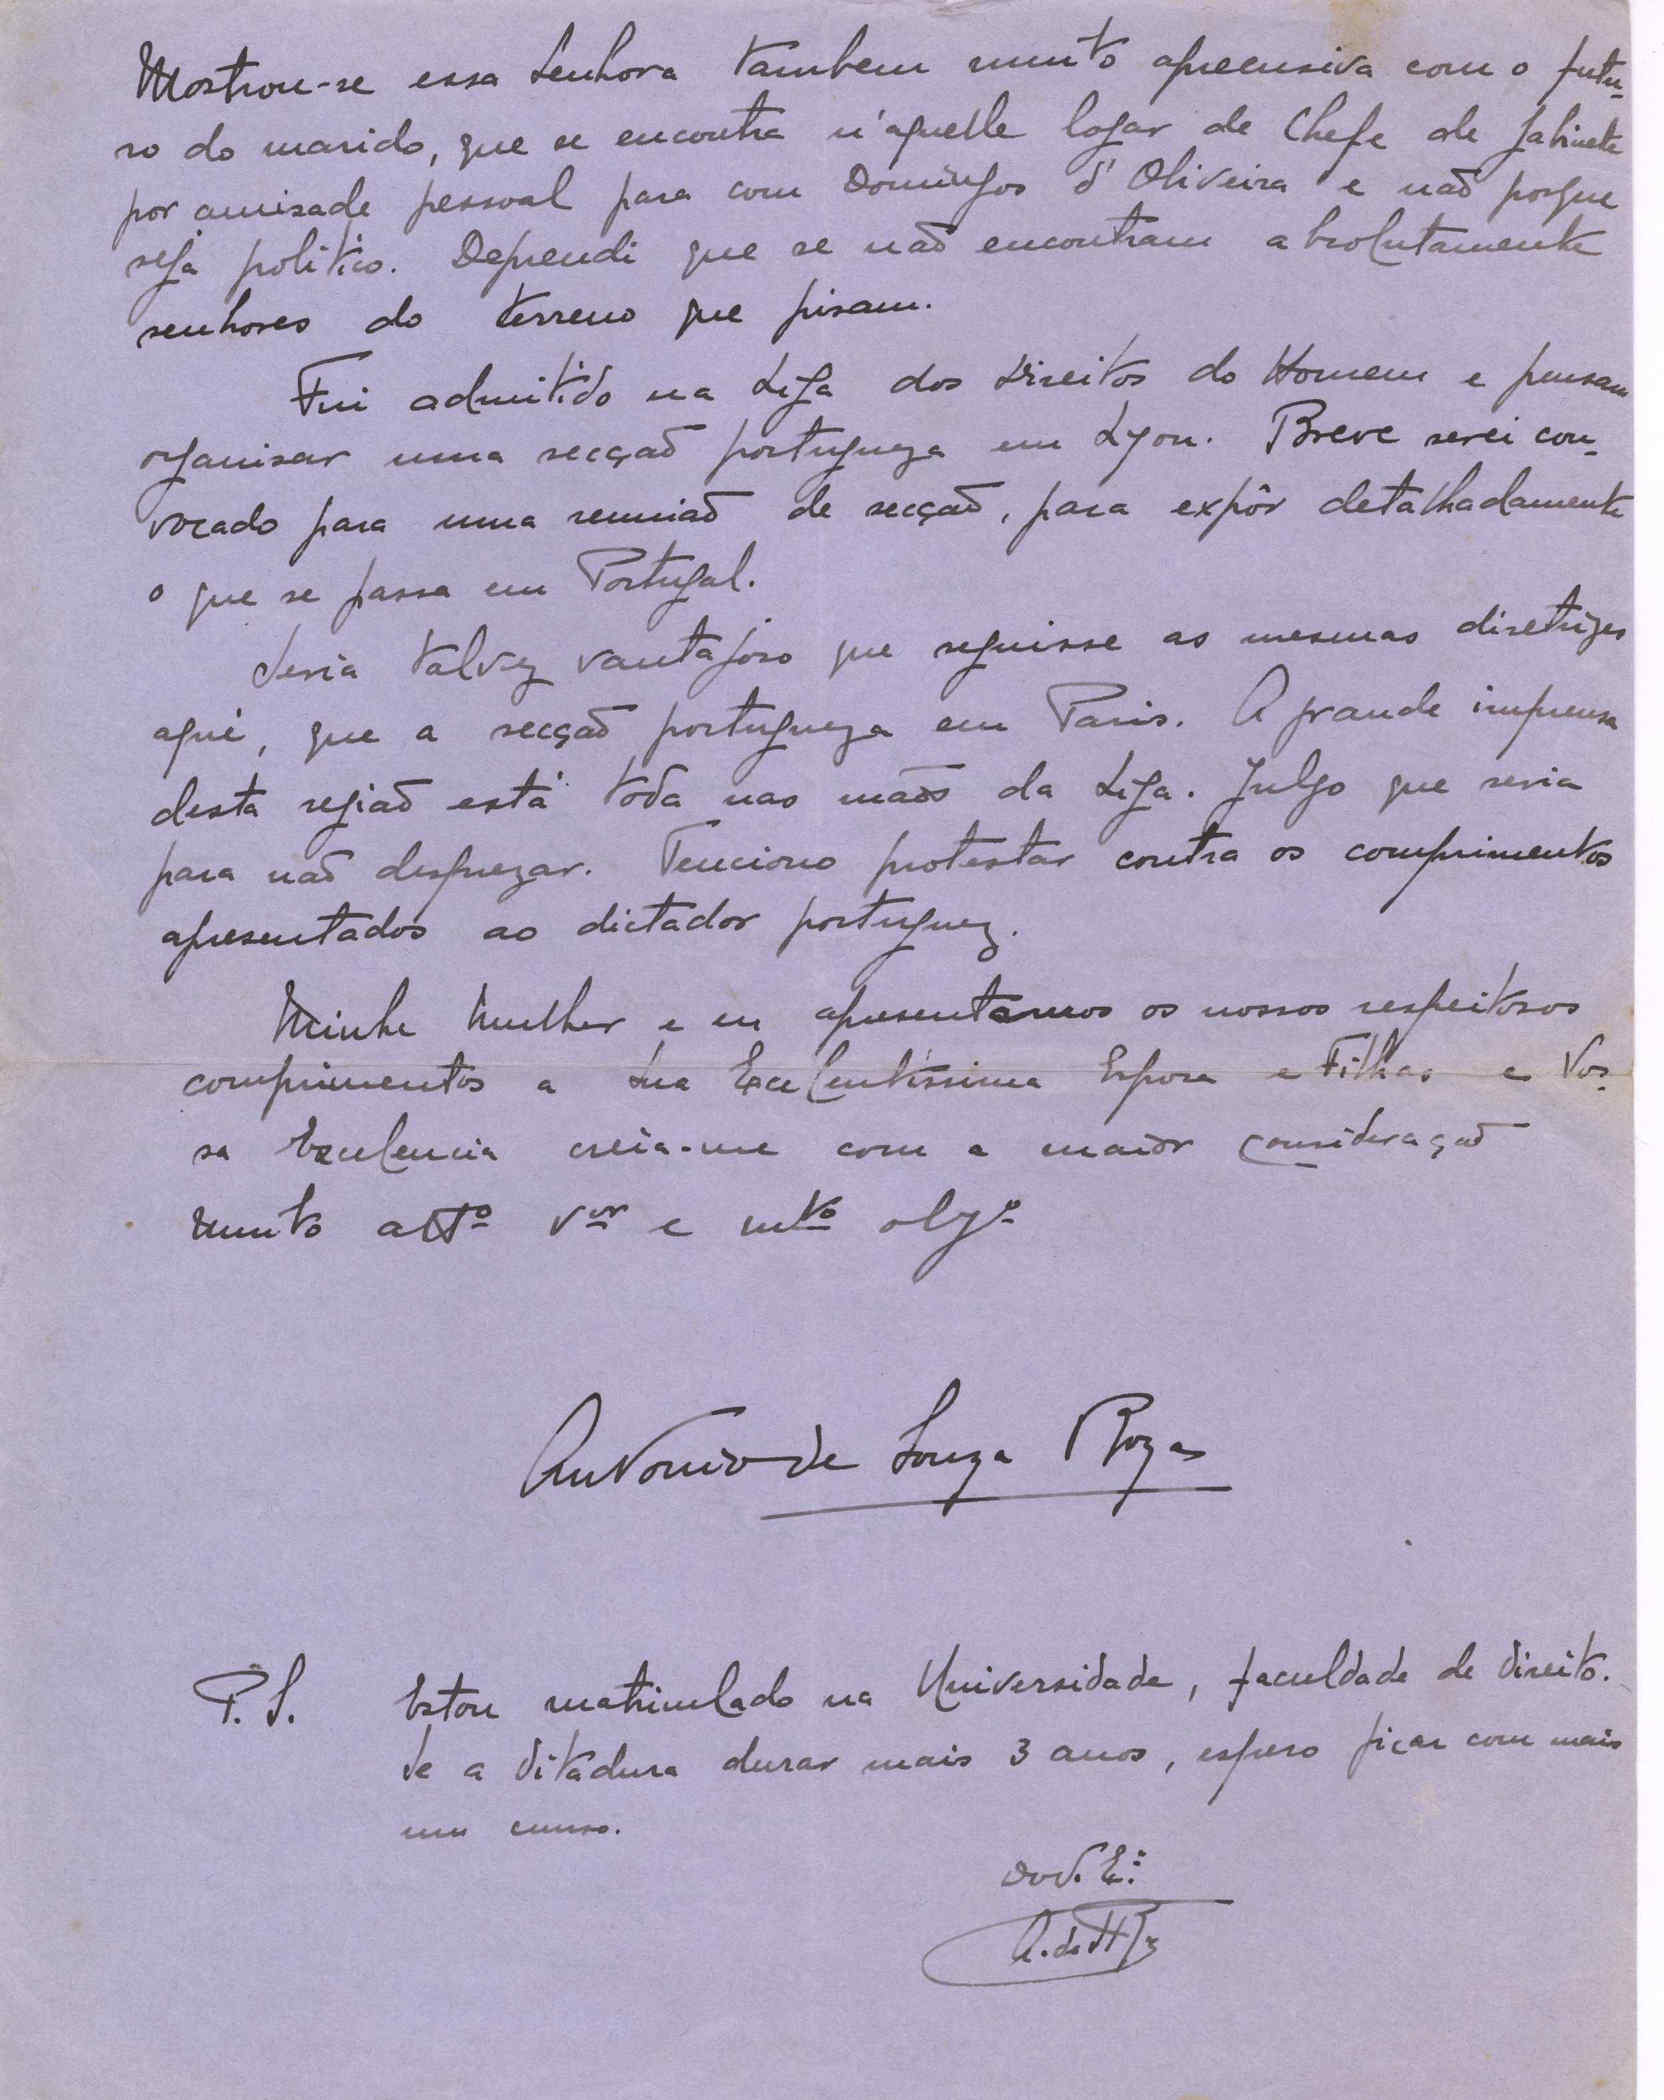 Mostrou-se essa Senhora tambem muito apreensiva com o futu-
ro do marido, que se encontra n'aquelle logar de Chefe de Gabinete
por amisade pessoal para com Domingos d'Oliveira e não porque
seja politico. Deprendi que se não encontram absolutamente
senhores do terreno que pisam.
Fui admitido na Liga dos Direitos do Homem e pensam
organisar uma secção portugueza em Lyon. Breve serei con-
vocado para uma reunião de secção, para expôr detalhadamente
o que se passa em Portugal.
Seria talvez vantajoso que seguisse as mesmas diretrizes
aqui, que a secção portugueza em Paris. A grande imprensa
desta região está toda nas mãos da Liga. Julgo que seria
para não desprezar. Tenciono protestar contra os comprimentos
apresentados ao dictador portuguez.
Minha Mulher e eu apresentamos os nossos respeitosos
comprimentos a Sua Excelentíssima Esposa e Filhas e Vos-
sa Excelencia creia-me com a maior consideração
Muito attº vor e mto obgº
Antonio de Souza Rozas
P. S. Estou matriculado na Universidade, faculdade de direito.
Se a ditadura durar mais 3 anos, espero ficar com mais
um curso.